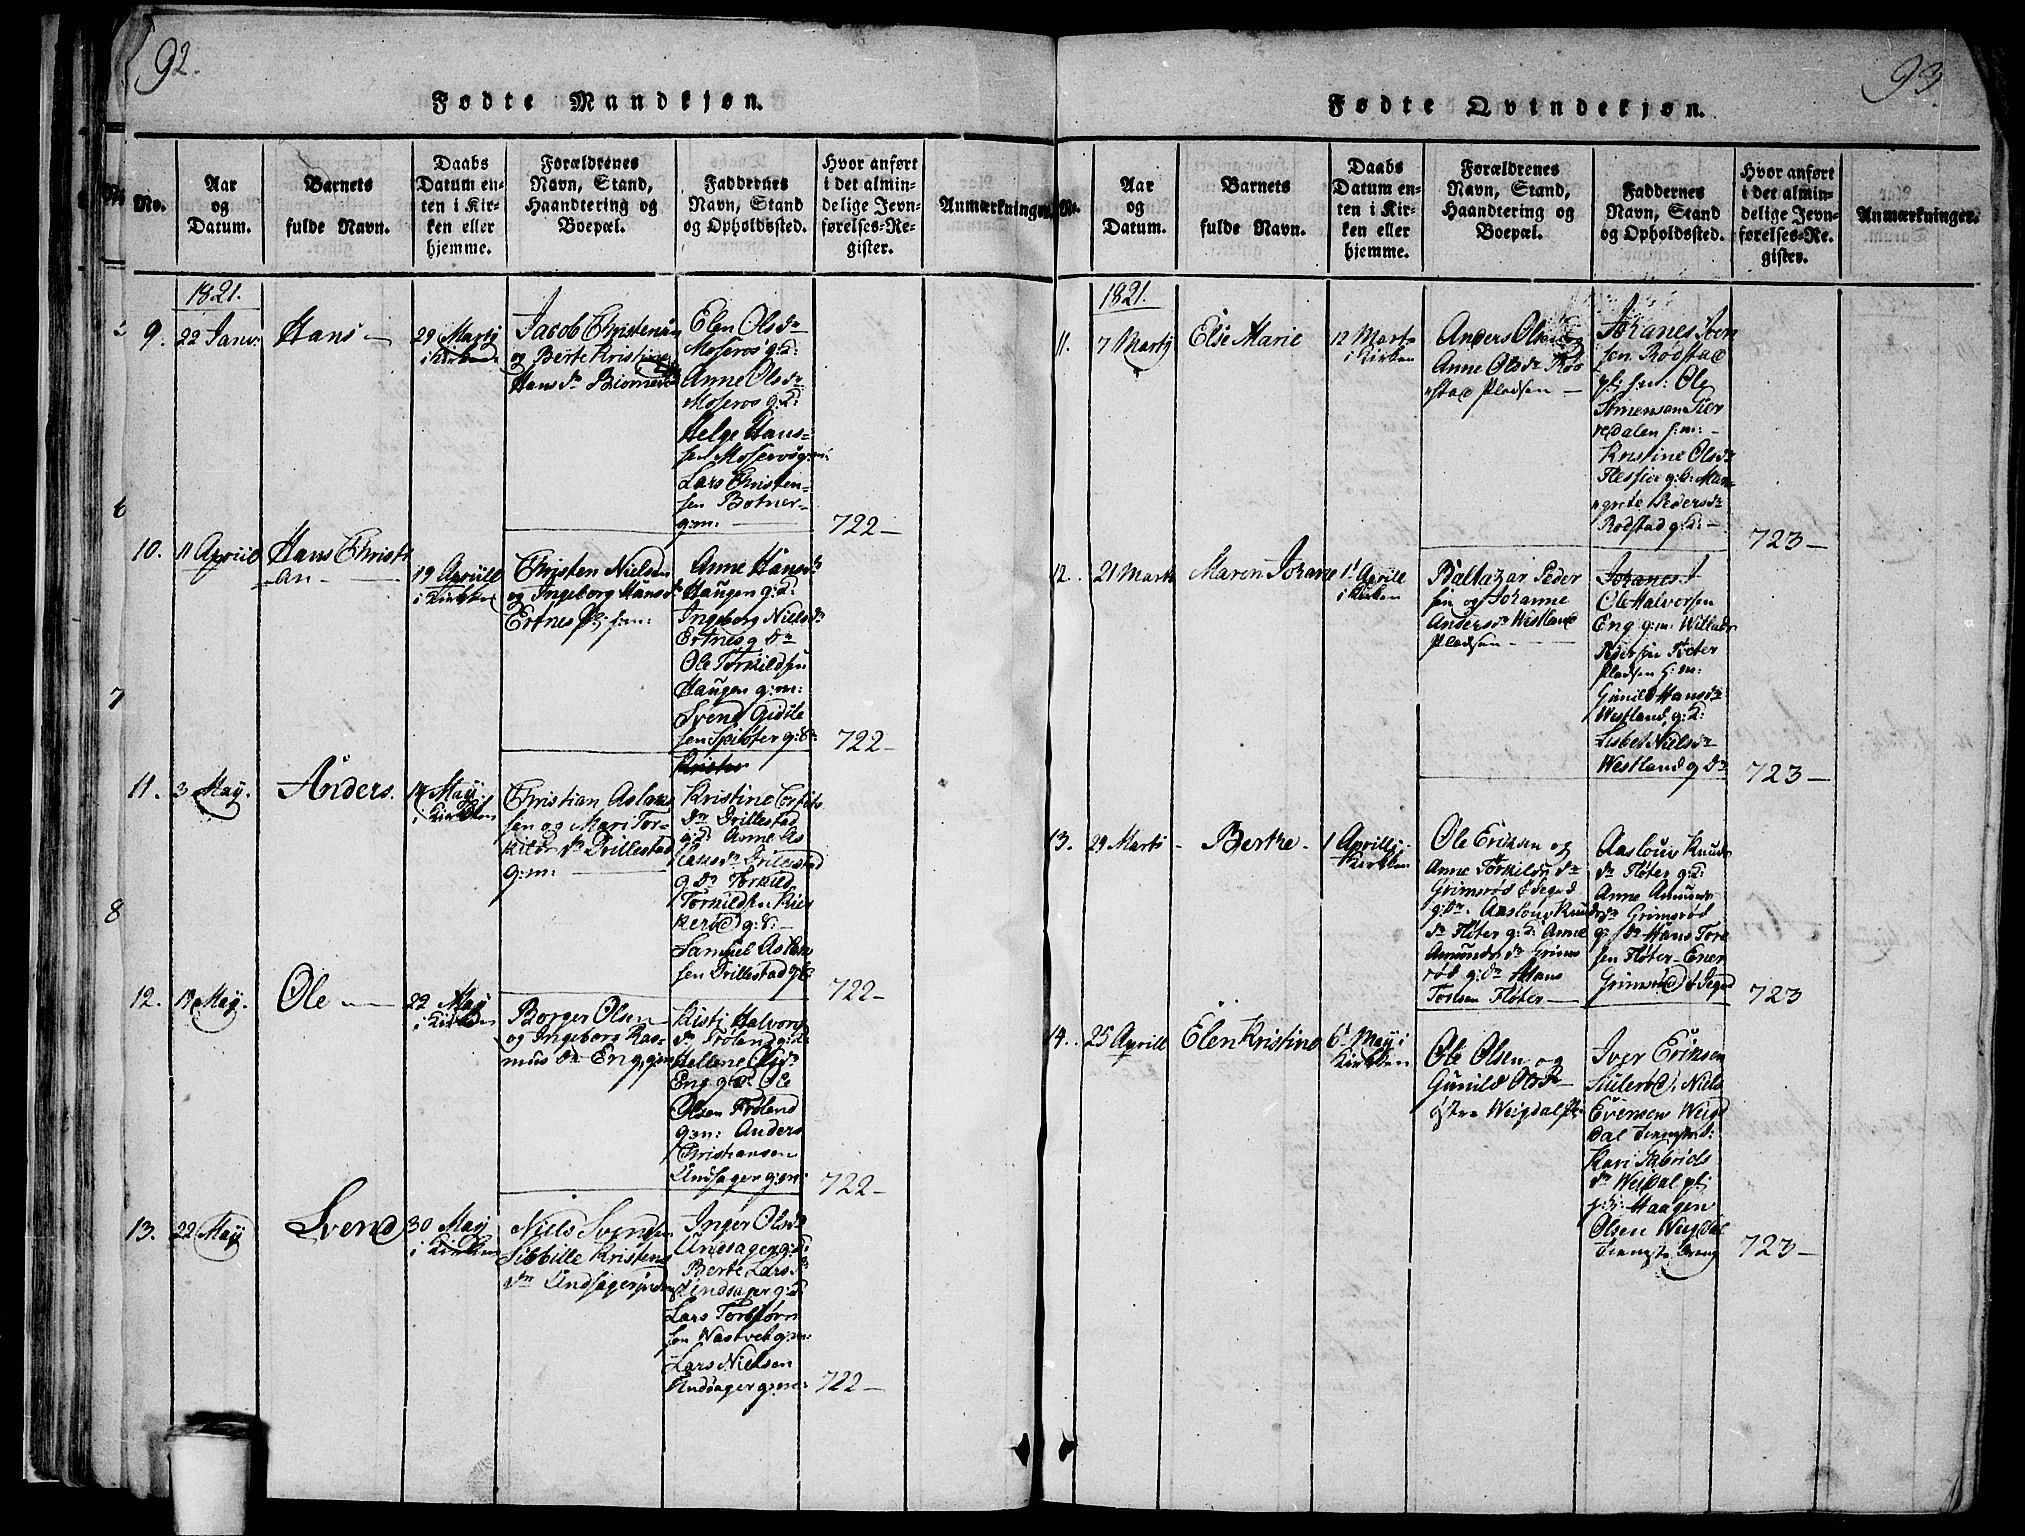 92.
Fødte Mandkjøn.
No.
Aar
og
Datum.
Barnets
fulde Navn.
Daabs
Datum en-
ten i Kir-
ken eller
hjemme.
Forældrenes
Navn, Stand,
Haandtering og
Boepæl.
Faddernes
Navn, Stand
og Opholdssted.
Hvor anført
i det almin-
delige Jevn-
førelses-Re-
gister.
Anmærkninger.
1821.
9.
22 Janv:
Hans
29 Martÿ
i Kirken
Jacob Christensen
og Berte Kristine
Hans dr
Elen Olsdr
Moserøs g: d:
Anne Olsdr
Moserøs g: d:
Helge Hans-
sen Moserøs g: m:
Lars Christen-
sen Botner
g: m:
722
10.
11 Apriil
Hans Christi
an
19 Aprill
i Kirken
Christen Nielsen
og Ingeborg Hansdr
Ertnes Pl: f: m:
Anne Hansdr
Haugen g: d:
Ingeborg Nielsdr
Ertnes g dr
Ole Torkildsen
Haugen g: m:
Svend
sen
722
11.
3 Maÿ.
Anders.
14 Maÿ
i Kirken
Christian Aslak
sen og Mari Tor-
kilds dr Trillestad
g: m:
Kristine
dr Trillestad
g: d Anne As
laks dr Trillestad
g dr Torkild
Torkildsen Kier
kerud g: d:
Samuel Aslak
sen Trillestad
722
12.
Maÿ.
Ole
22 Maÿ
i Kirken
Borger Olsen
og Ingeborg Ras-
mus dr Eng, gm
Kisti Halvors
dr Frøland g: d:
Hellene Olsdr
Eng g: d. Ole
Olsen Frøland
g: m: Anders
Christiansen
Undsager g: m:
722
13.
22 Maÿ
Svend
30 Maÿ
i Kirken
Niels Svendsen
Sibbille Kristens
dr Undsager
Inger Olsdr
Undsager g: d:
Berte Larsdr
Undsager g: d
Lars Torbiørn
sen Nastvet g: m:
Lars Nielsen
Undsager g: m:
722
93.
Fødte Qvindekjøn.
No.
Aar
og
Datum.
Barnets
fulde Navn.
Daabs
Datum en-
ten i Kir-
ken eller
hjemme.
Forældrenes
Navn, Stand,
Haandtering og
Boepæl.
Faddernes
Navn, Stand
og Opholdssted.
Hvor anført
i det almin-
delige Jevn-
førelses-Re-
gister.
Anmærkninger.
1821.
11.
7 Martÿ
Else Marie
12 Marts
i Kirken
Anders Olsen og
Anne Olsdr Rod
stad Pladsen
Johanes Iver
sen Rodstad
pl: f: m: Ole
Simensen Tier
redalen f: m:
Kristine Olsdr
g: d: Mar
grete Pedersdr
Rodstad g: d:
723
12.
21 Marts
Maren Johane
1 Aprile
i Kirken
Baltazar Peder
sen og Johanne
Andersdr Westland
Pladsen
Johanes
Ole Halvorsen
Eng g: m: Willads
Pedersen Fløter
Pladsen f: m:
Gunild Hansdr
Westland, g: d:
Lisbet Nielsdr
Westland g dr
723
13.
29 Marts
Berthe
1 Aprill i
Kirken
Ole Eriksen og
Anne Torkilds dr
Grimsrød Ødegd
g: dr. Aaslouv Knuds
dr Fløter g: d: Anne
Amunds dr Grims
rød g: dr Hans
Toresen Fløter
Aaslouv Knuds
dr Fløter g: d:
Anne Amunds
dr Grimsrød
g: dr Hans Tore
sen Fløter Ener
Grimsrød Ødegd
723
14.
25 Aprill
Elen Kristine
6 Maÿ i
Kirken
Ole Olsen og
Gunild Olsdr
østre Weigdal
Iver Eriksen
Niels
Evensen Weig
dal
Kari Gabriels
dr Weidal pl:
Haagen
Olsen Weigdal
723